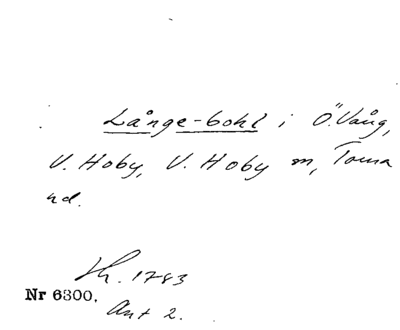 Långe-bohl i Ö. Vång,
V. Hoby, V. Hoby m, Torna
hd.
Sk. 1783
Nr 6300.
Akt 2.